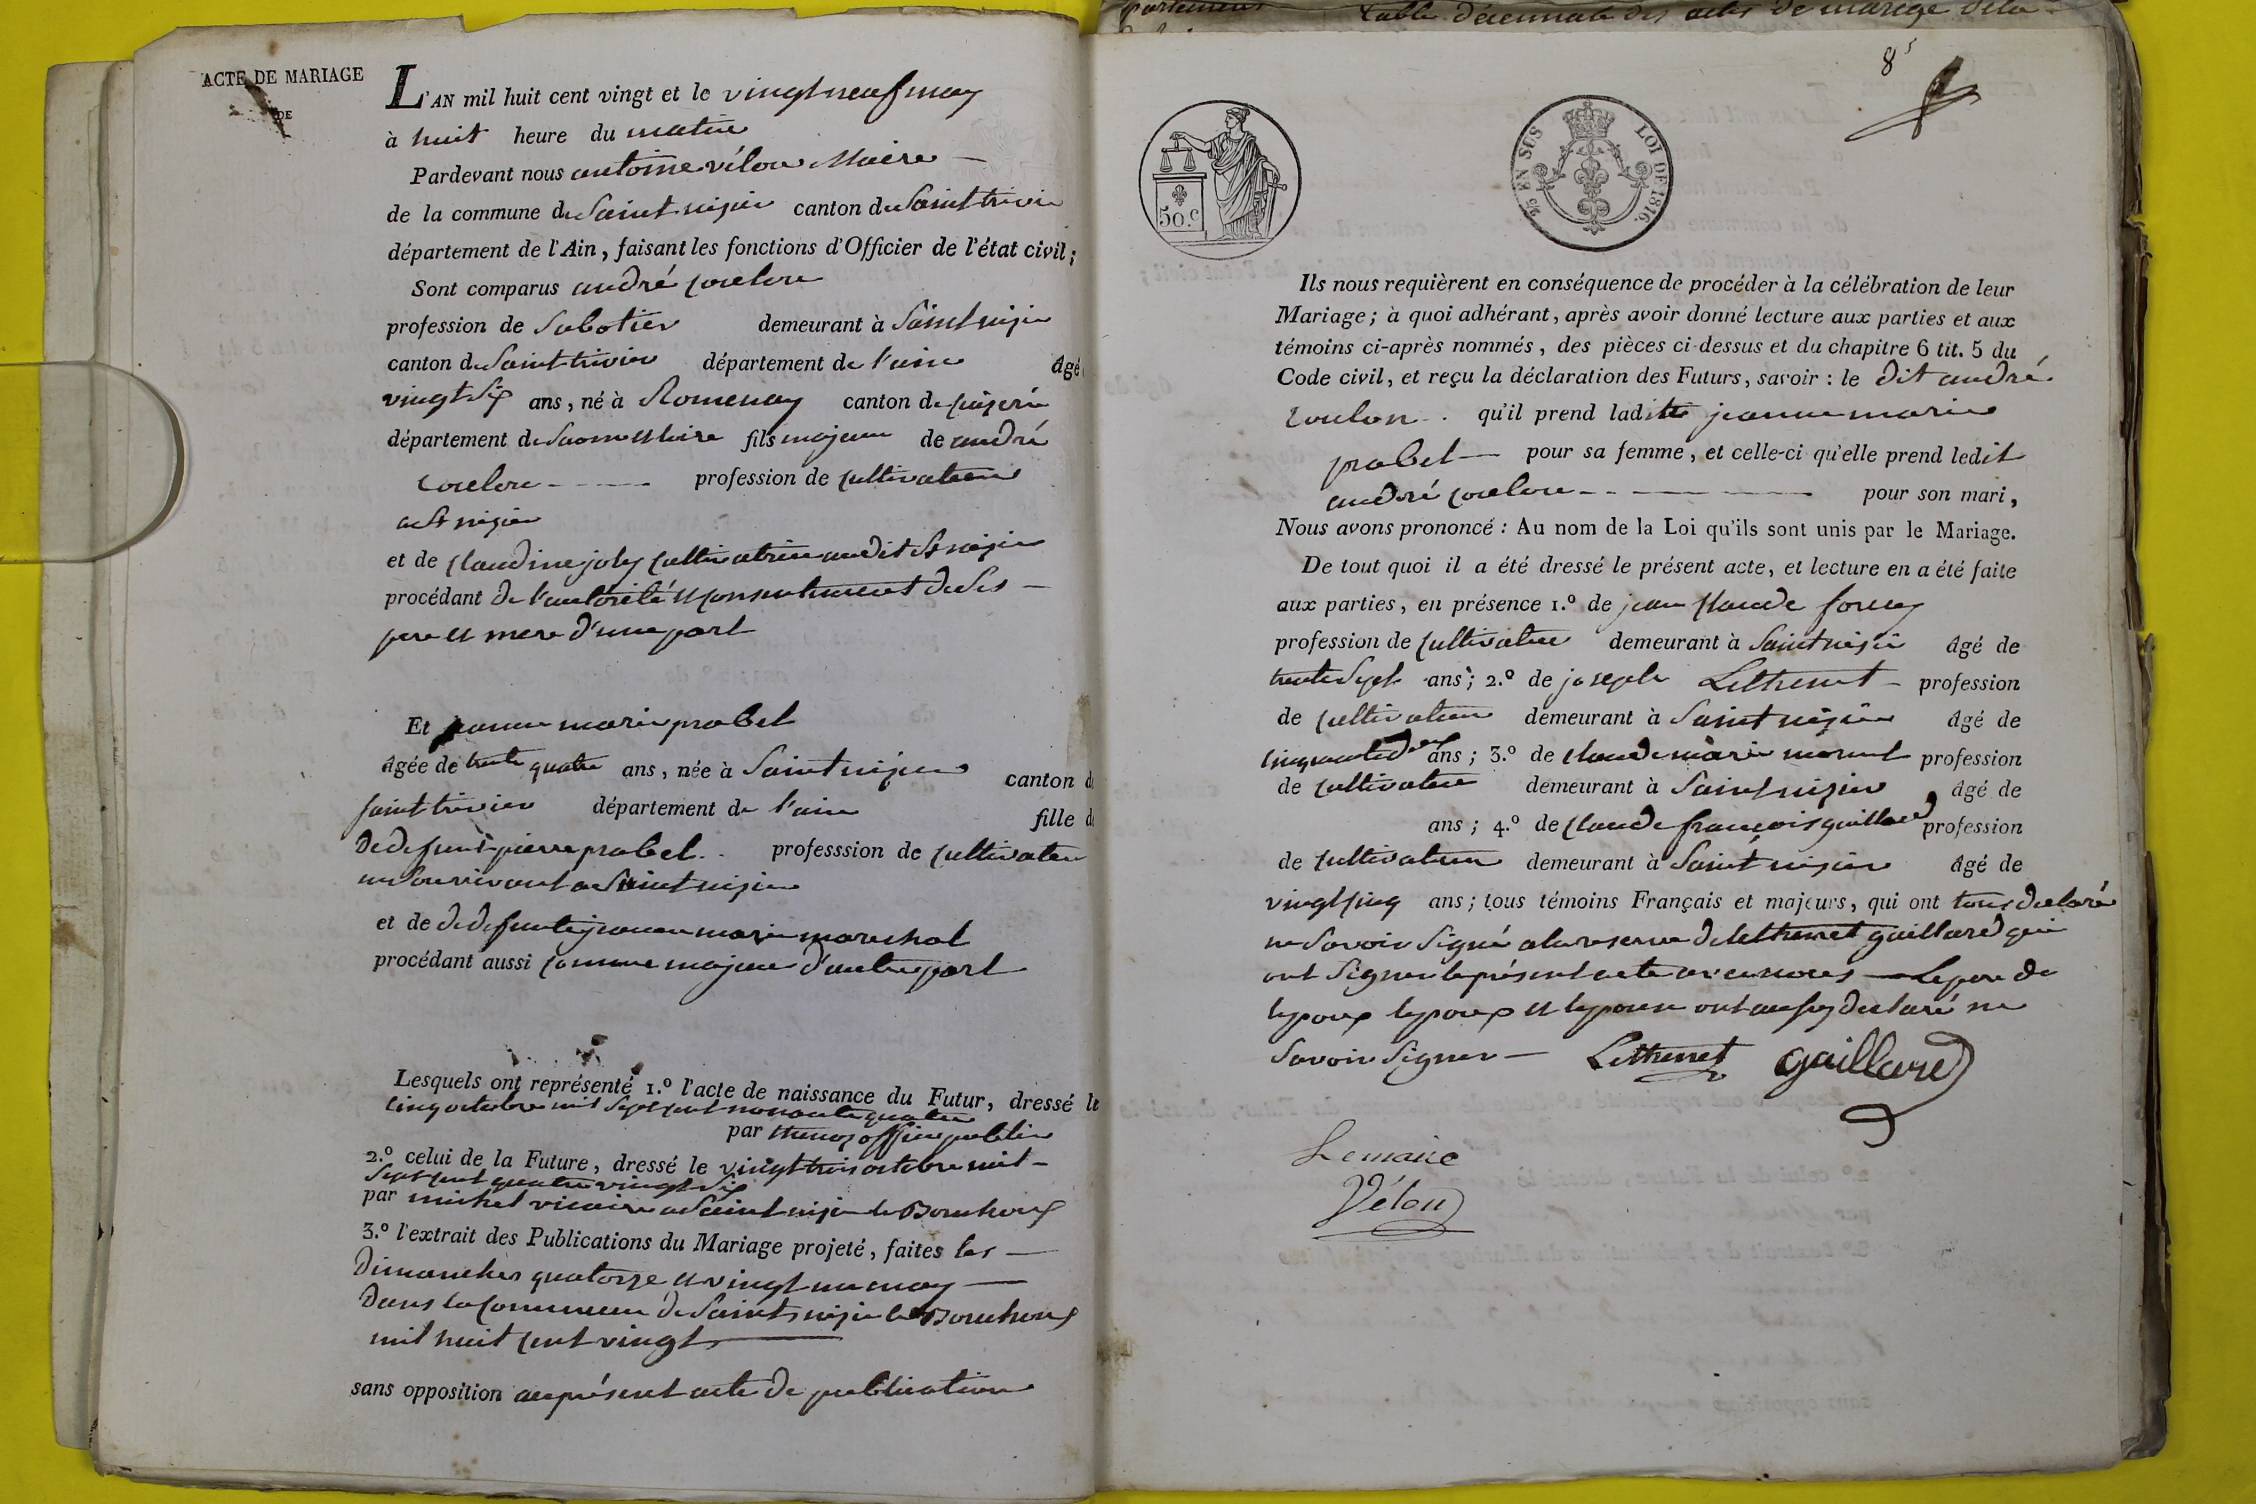 ACTE DE MARIAGE
DE
L'AN mil huit cent vingt et le vingt neuf may
à huit heure du matin
Pardevant nous antoine vélon Maire
de la commune de Saint nizier canton de Saint trivier
département de l'Ain, faisant les fonctions d'Officier de l'état civil;
Sont comparus andré coulon
profession de Sabotier demeurant à Saint nizier
canton de Saint trivier département de l'ain âgé
vingt Six ans, né à Romenay canton de cuizeri
département de Saone et loire fils majeur de andré
coulon profession de cultivateur
a St nizier
et de claudine joly cultivatrice audit St nizier
procédant de l'autorité et consentement de Ses
pere et mere d'une part
Et jeanne marie probet
âgée de trente quatre ans, née à Saint nizier canton de
Saint trivier département de l'ain fille de
de defunt pierre probet profession de cultivateur
un Survivant a Saint nizier
et de de defunte jeanne marie marechal
procédant aussi comme majeure d'autre part
Lesquels ont représenté 1.º l'acte de naissance du Futur, dressé le
cinq octobre mil Sept cent nonante quatre
par officier public
2.º celui de la Future, dressé le vingt trois octobre mil
Sept cent quatre vingt Six
par michel vicaire a Saint nizier le Bouchoux
3.º l'extrait des Publications du Mariage projeté, faites les
dimanches quatorze et vingt un may
dans la commune de Saint nizier le Bouchoux
mil huit cent vingt
sans opposition au présent acte de publication
partement table décennale des actes de mariage de la
8
50.c
25 EN SUS LOI DE 1816.
Ils nous requièrent en conséquence de procéder à la célébration de leur
Mariage; à quoi adhérant, après avoir donné lecture aux parties et aux
témoins ci-après nommés, des pièces ci-dessus et du chapitre 6 tit. 5 du
Code civil, et reçu la déclaration des Futurs, savoir: le dit andré
coulon qu'il prend laditte jeanne marie
probet pour sa femme, et celle-ci qu'elle prend ledit
andré coulon pour son mari,
Nous avons prononcé: Au nom de la Loi qu'ils sont unis par le Mariage.
De tout quoi il a été dressé le présent acte, et lecture en a été faite
aux parties, en présence 1.º de jean claude
profession de cultivateur demeurant à Saint nizier âgé de
trente Sept ans; 2.º de joseph Lethenet profession
de cultivateur demeurant à Saint nizier âgé de
cinquante deux ans; 3.º de claude marie profession
de cultivateur demeurant à Saint nizier âgé de
ans; 4.º de claude françois guillard profession
de cultivateur demeurant à Saint nizier âgé de
vingt cinq ans; tous témoins Français et majeurs, qui ont tous déclaré
ne Savoir Signé a la reserve de lethenet guillard qui
ont Signer le présent acte avec nous Le pere de
lepoux lepoux et lepouse ont aussy declaré ne
Savoir Signer Lethenet guillard
Le maire
Vélon